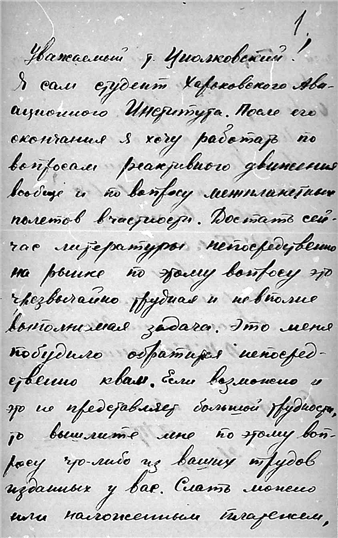 1.
Уважаемый т. Циолковский!
Я сам студент Харьковского Ави-
ационного Института. После его
окончания я хочу работать по
вопросам реактивного движения
вообще и по вопросу межпланетных
полетов в частности. Достать сей-
час литературы непосредственно
на рынке по этому вопросу это
чрезвычайно трудная и невполне
выполнимая задача. Это меня
побудило обратится непосред-
ственно квам. Если возможно и
это не представляет большой трудности,
то вышлите мне по этому воп-
росу что-либо из ваших трудов
изданных у вас. Слать можно
или наложенным платежем,